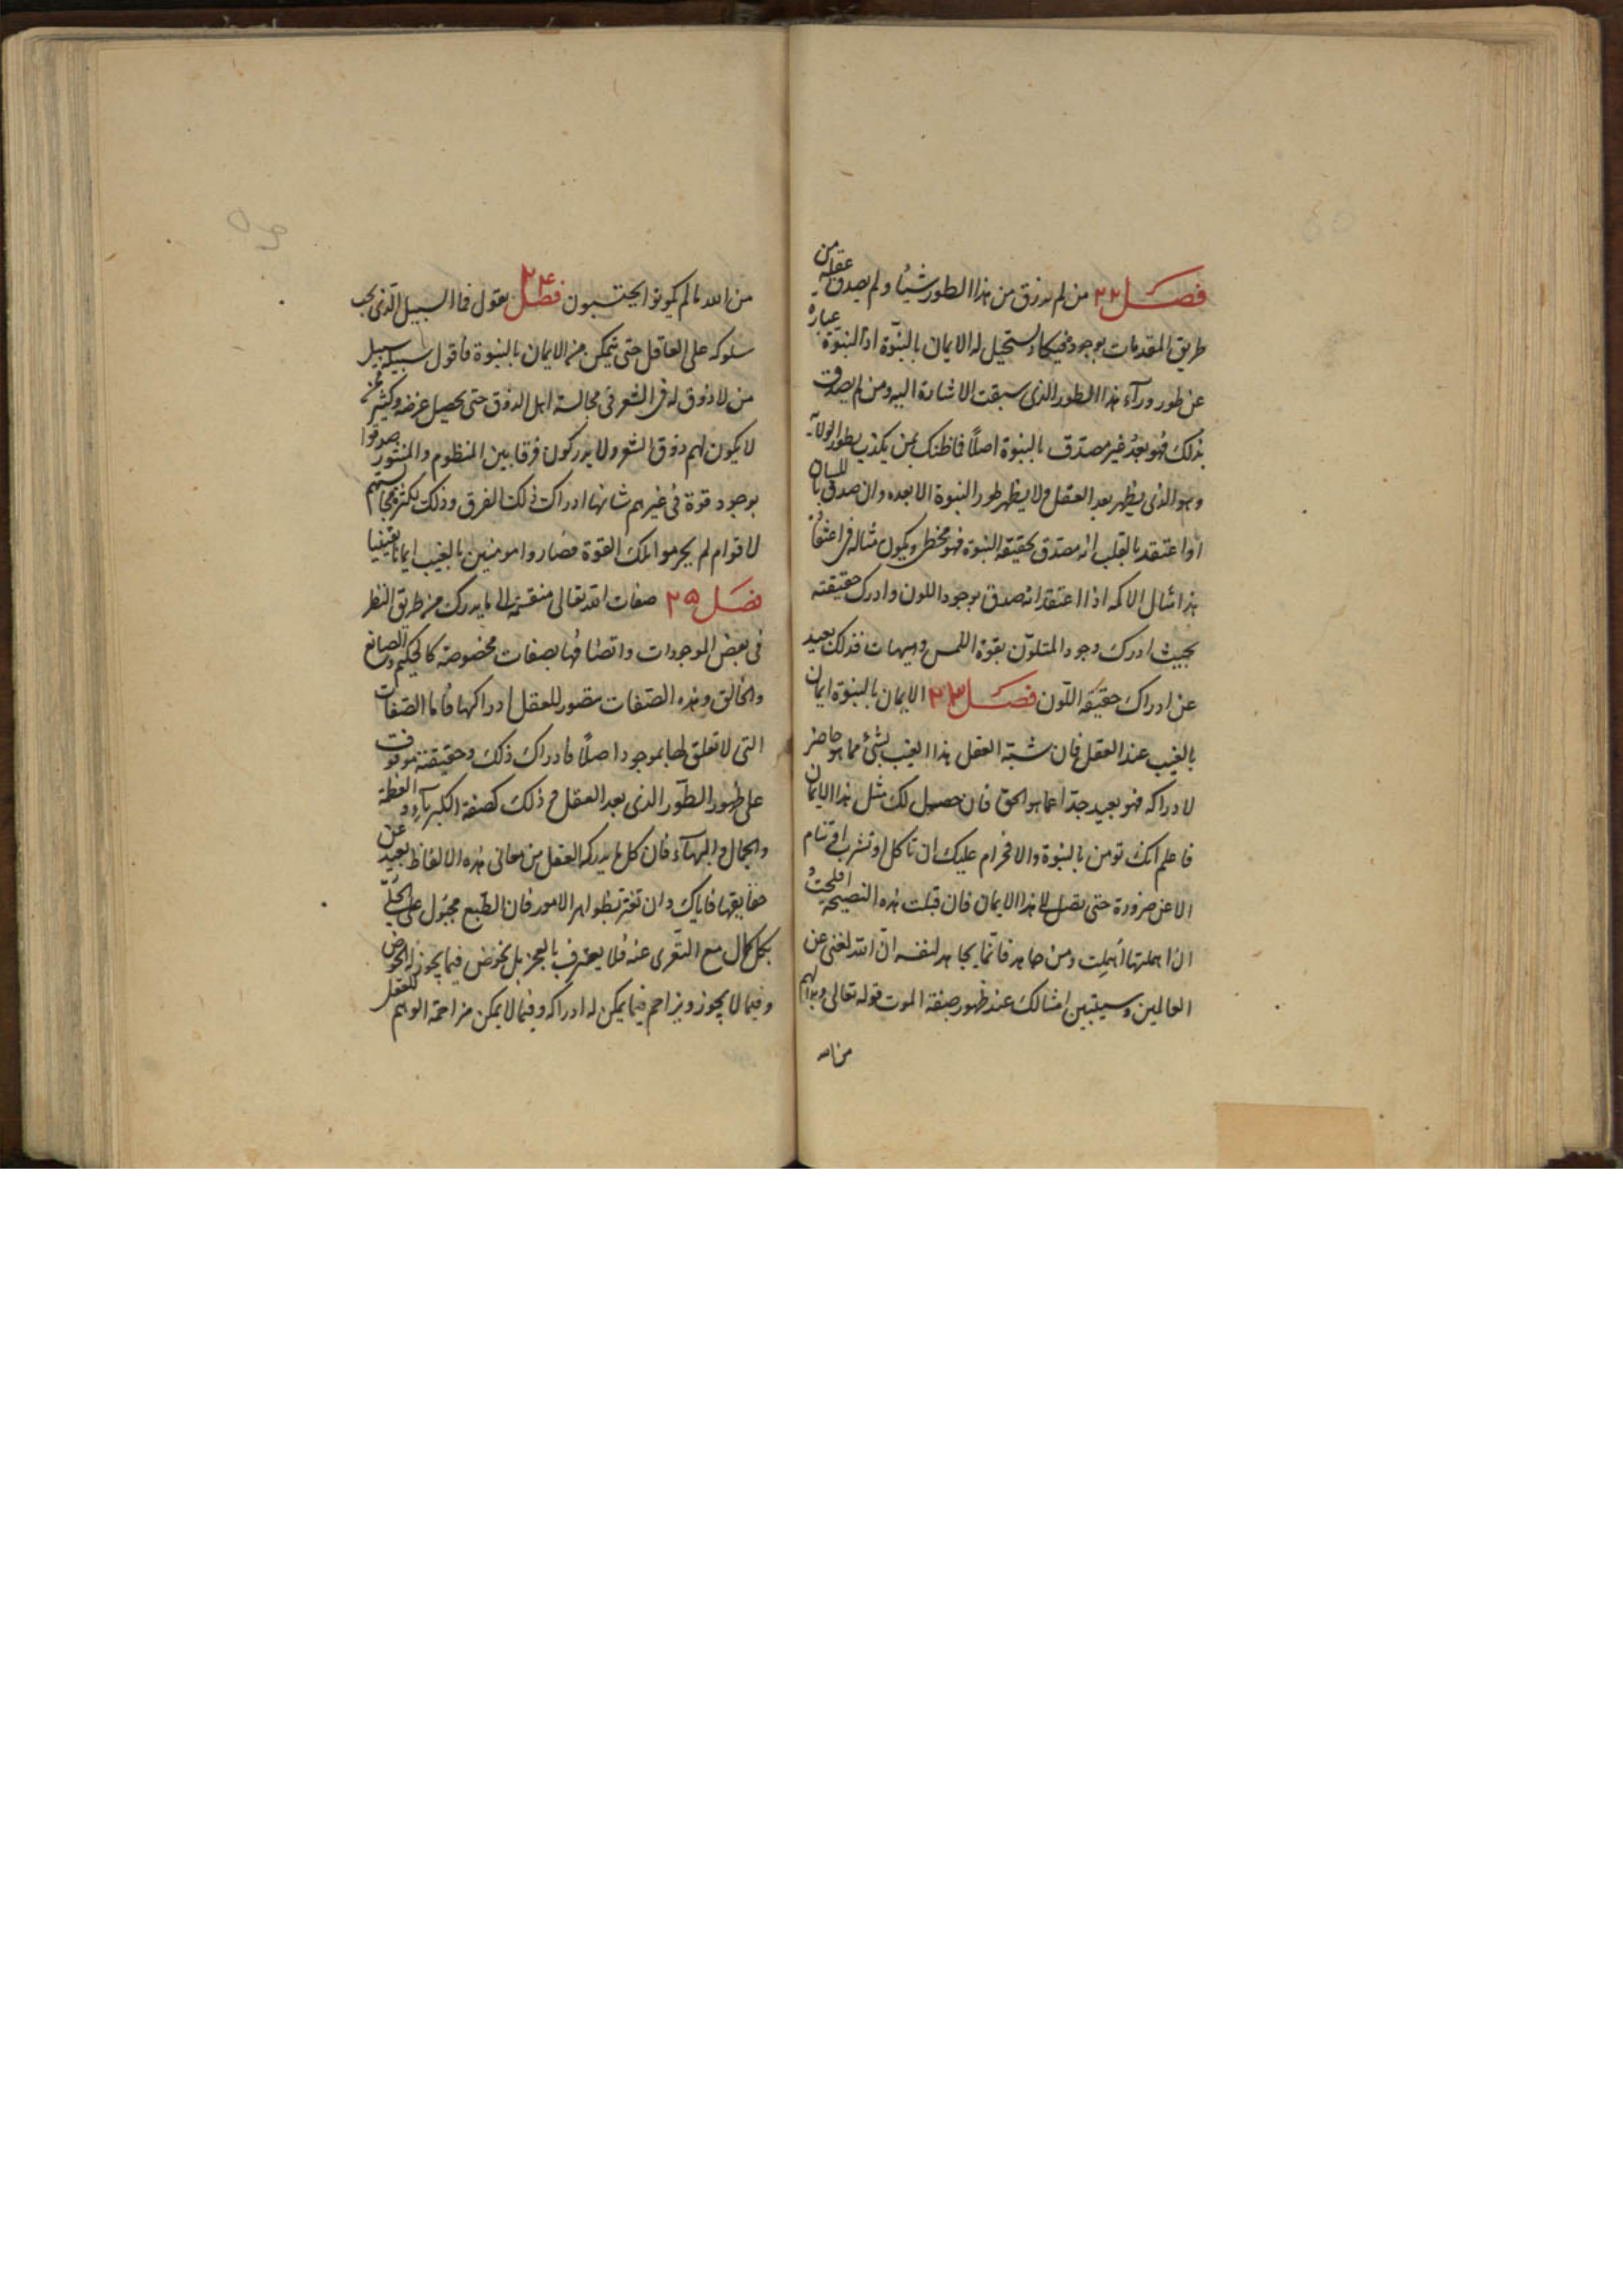 فصل ٢٢ من لم يرزق من هذا الطور شيئا ولم يصدق عقله من
طريق المقدمات بوجوده فيكاد يستحيل له الايمان بالنبوة اذ النبوة عبارة
عن طور ورآء هذا الطور الذى سبقت الاشارة اليه ومن لم يصدق
بذلك فهو بعد غير مصدق بالنبوة اصلا فما ظنك بمن يكذب بطور الولاية
وهو الذى يظهر بعد العقل ولا يظهر طور النبوة الا بعده وان صدق باللسان
او اعتقد بالقلب انه مصدق بحقيقة النبوة فهو مخطئ ويكون مثاله فى اعتقاد
هذا مثال الاكمه اذا اعتقد انه صدق بوجود اللون وادرك حقيقته
بحيث ادرك وجود المتلون بقوة اللمس وهيهات فذلك بعيد
عن ادراك حقيقة اللون فصل ٢٣ الايمان بالنبوة ايمان
بالغيب عند العقل فان شبّه العقل هذا الغيب بشئ مما هو حاضر
لادراكه فهو بعيد جدا عما هو الحق فان حصل لك مثل هذا الايمان
فاعلم انك تومن بالنبوة والا فحرام عليك ان تاكل او تشرب او تنام
الا عن ضرورة حتى تصل الى هذا الايمان فان قبلت هذه النصيحة افلحت
وان اهملتها اهملت ومن جاهد فانما يجاهد لنفسه ان الله لغنى عن
العالمين وسيتبين امثالك عند ظهور صفة الموت قوله تعالى وبدا لهم
من الله
من الله ما لم يكونوا يحتسبون فصل ٢٤ يقول فما السبيل الذى يجب
سلوكه على العاقل حتى يتمكن من الايمان بالنبوة فاقول سبيله سبيل
من لا ذوق له فى الشعر فى مجالسة اهل الذوق حتى يحصل غرضه وكثير ممن
لا يكون لهم ذوق الشعر ولا يدركون فرقا بين المنظوم والمنثور صدقوا
بوجود قوة فى غيرهم شانها ادراك ذلك الفرق وذلك بكثرة مجالستهم
لاقوام لم يحرموا تلك القوة فصاروا مومنين بالغيب ايمانا يقينيا
فصل ٢٥ صفات الله تعالى منقسمة الى ما يدرك من طريق النظر
فى بعض الموجودات واتصافها بصفات مخصوصة كالحكيم والصانع
والخالق وهذه الصفات مقصور للعقل ادراكها فاما الصفات
التى لا تعلق لها بموجود اصلا فادراك ذلك وحقيقته موقوف
على ظهور الطور الذى بعد العقل وذلك كصفة الكبرياء والعظمة
والجمال والبهاء فان كل ما يدركه العقل من معانى هذه الالفاظ بعيد عن
حقايقها فاياك وان تغتر بظواهر الامور فان الطبع مجبول على التحلّى
بكل كمال مع التعرى عنه فلا يعترف بالعجز بل يخوض فيما يجوز له الخوض
وفيما لا يجوز ويزاحم فيما يمكن له ادراكه وفيما لا يمكن مزاحمة الوهم للعقل